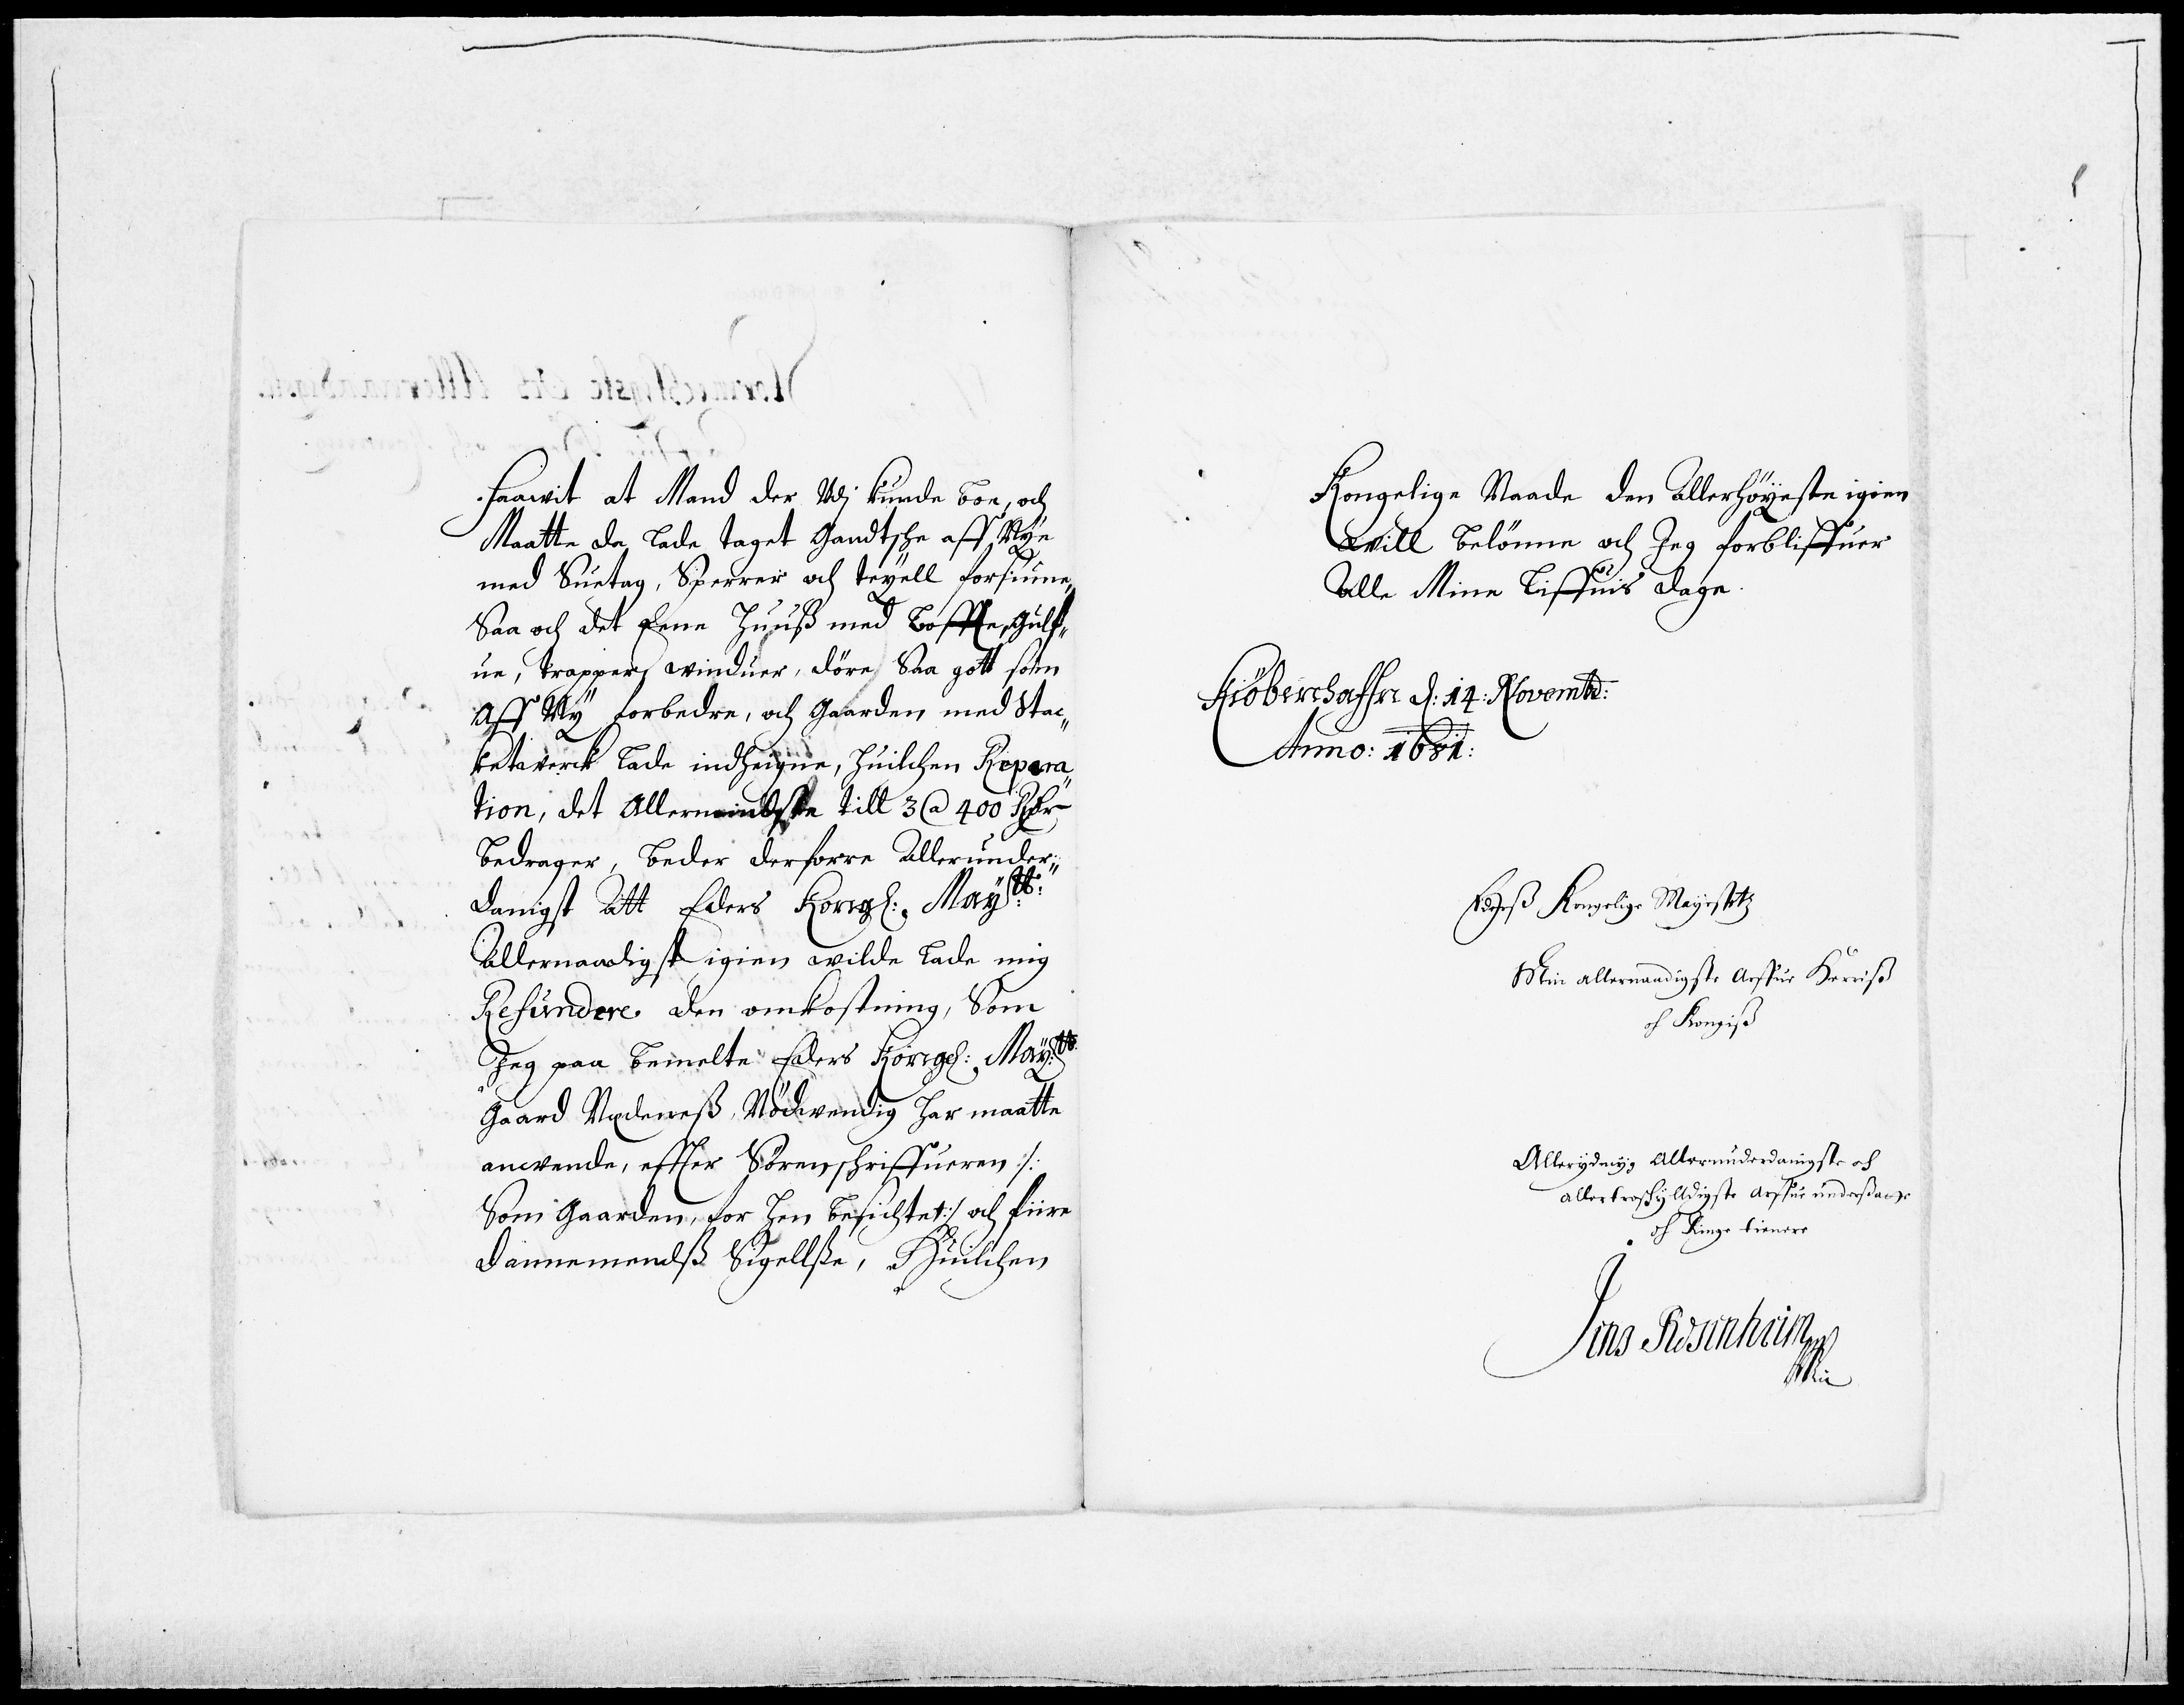 saawit at Mand der Udj kunde boe, och
Maatte da lade taget Gandtsche aff Nye
med Suetag, Sperrer och teyell forsiune,,
Saa och det Eene Huuß med Loffte, Gulf,,
ue, trapper, winduer, döre, Saa gott som
Aff Ny forbedre, och Gaarden med Stac,,
ketwerck lade indheigne, huilchen Repara,,
tion, det Allermindste till 3 @ 400 Rdr
bedrager, beder derforre Allerunder,,
danigst Att Eders Kongel: Maytt:
Allernaadigst igien wilde lade mig
Refundere den omkostning, Som
Jeg paa bemelte Eders Kongel: Maytt:
Gaard Nödwendig har maatte
anwende, effter Sörenschriffueren :/:
Som Gaarden, for hen besichtet :/ och fiire
dannemendß Sigellße, Huilchen
Kongelige Naade den Allerhöyeste igien
will belönne och Jeg forbliffuer
Alle Mine Liffuis dage.
Kiöbenhaffn d: 14: Novembr:
Anno: 1681:
Eders Kongelige Mayestetz
Min allernaadigste Arffue Herriß
och Kongiß
Allerydmyg Allerunderdanigste och
allertroschyldigste Arffue undersaatte
och Ringe tienere
Jens Rosenheim